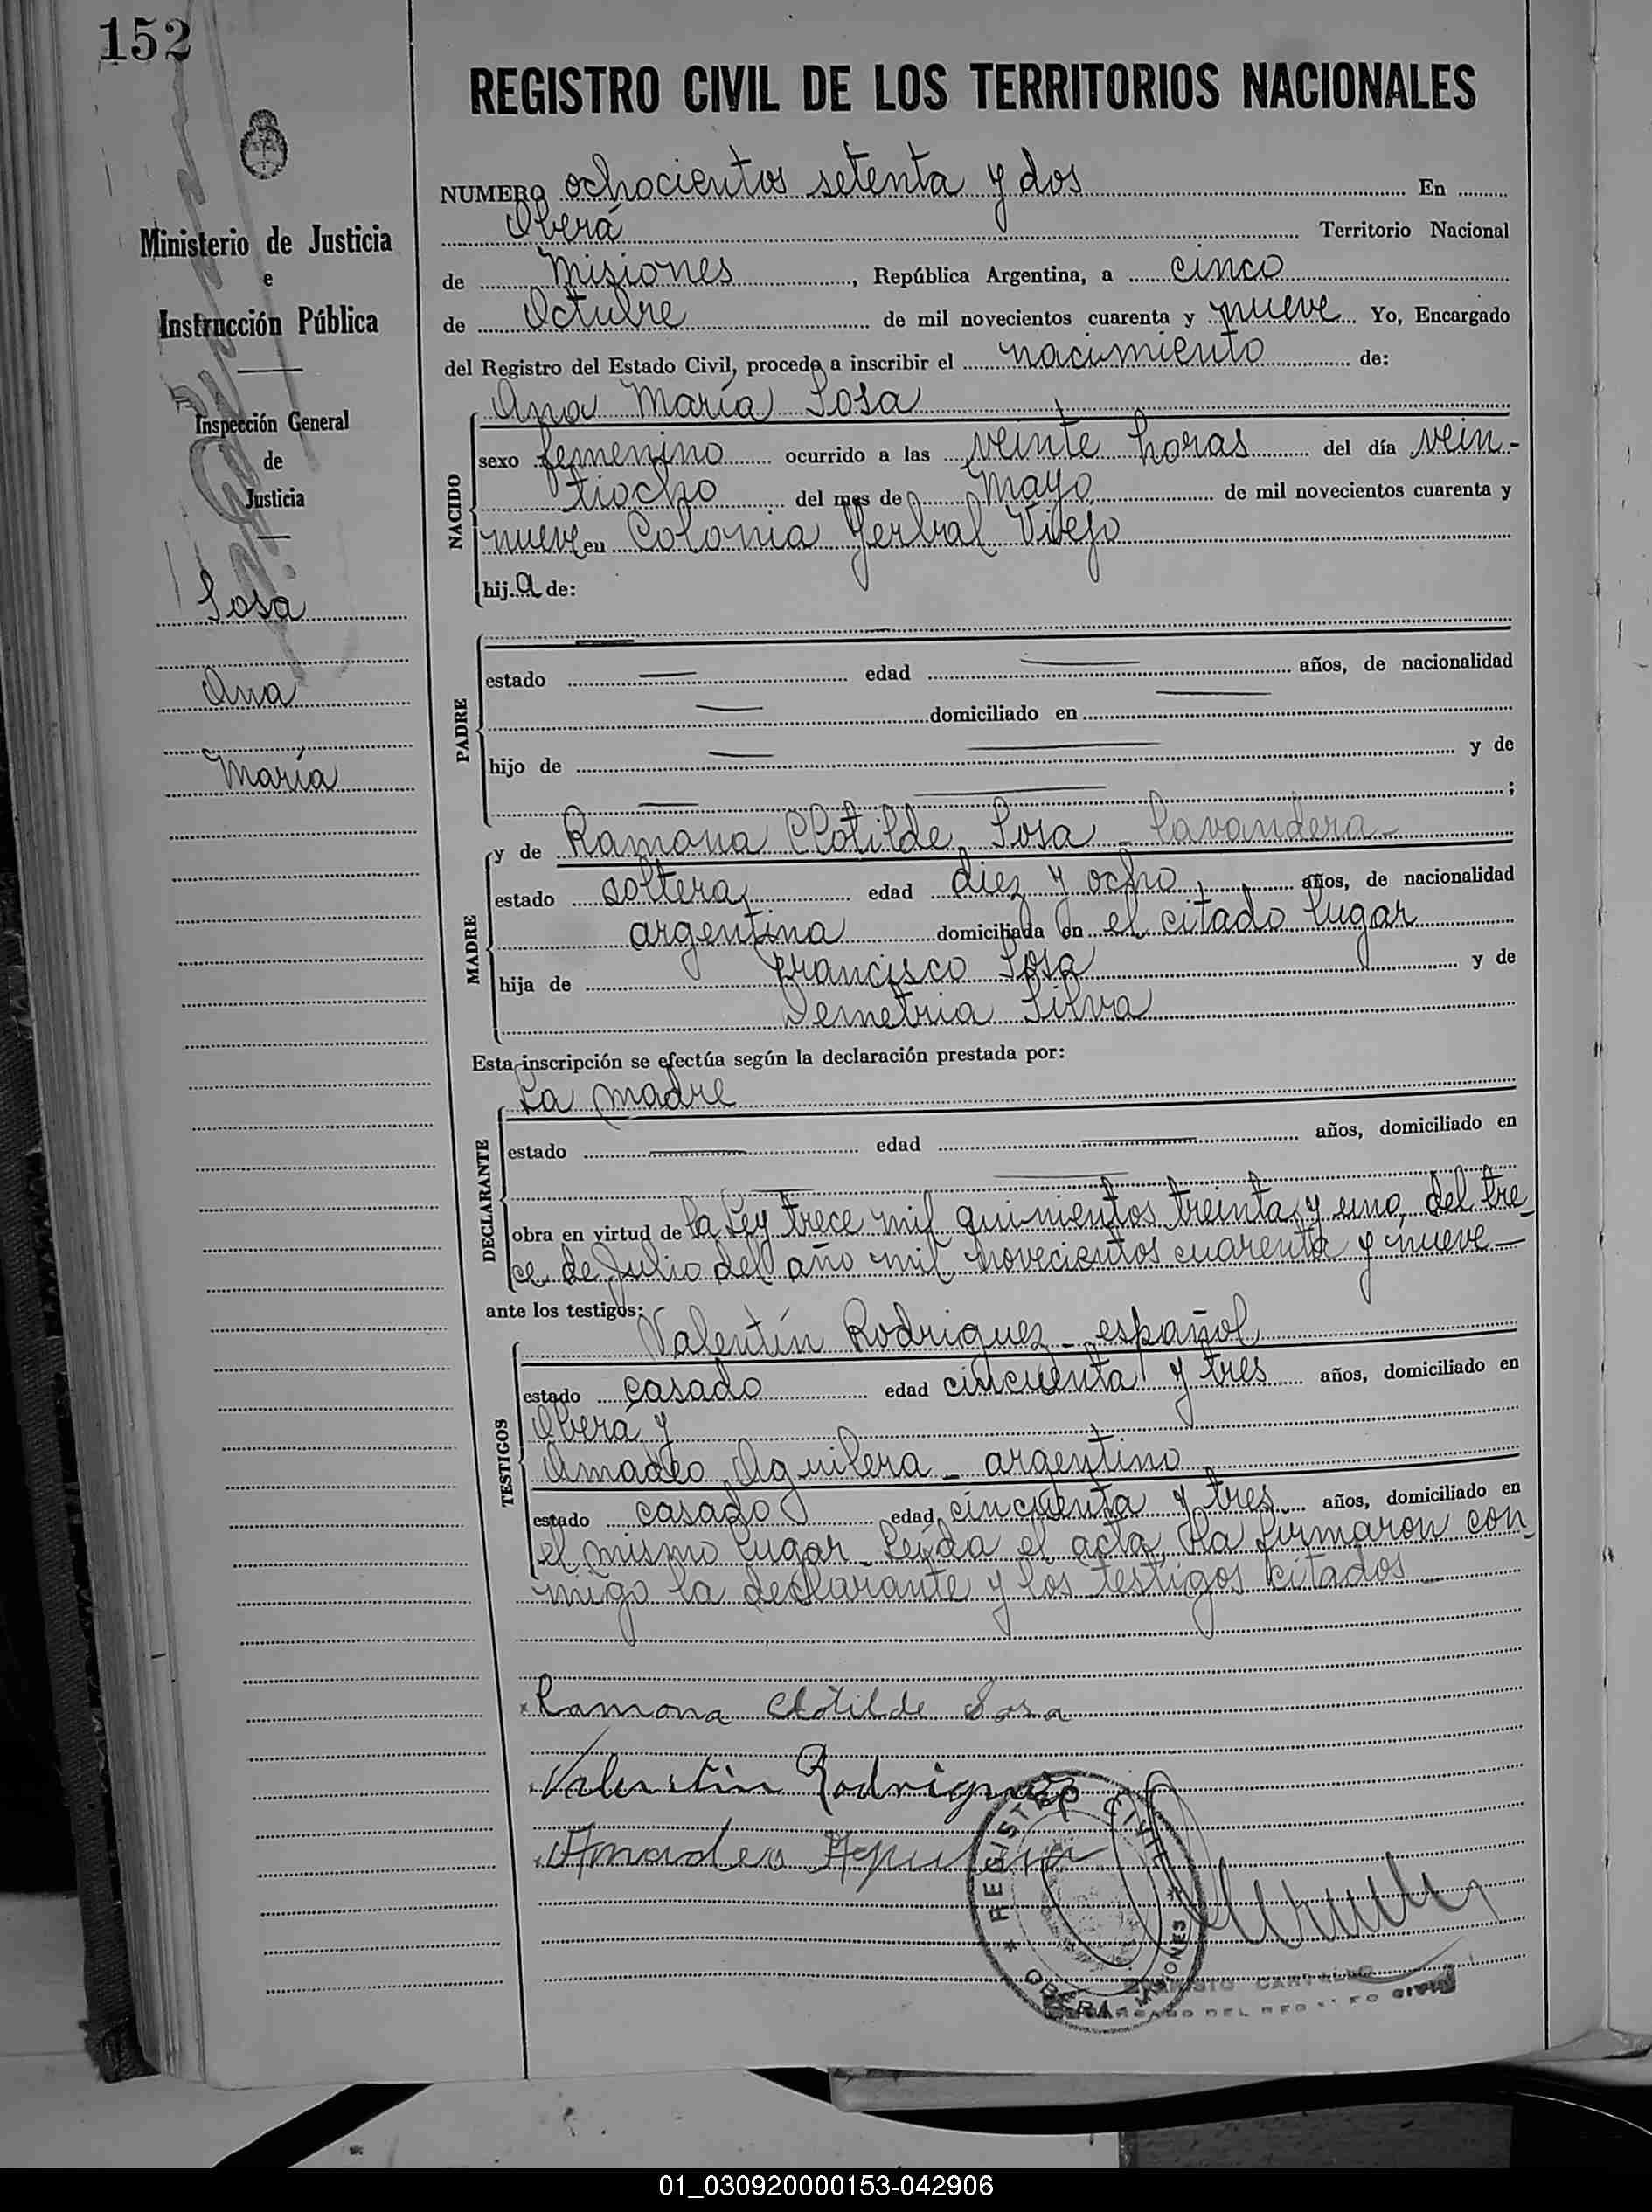 152
REGISTRO CIVIL DE LOS TERRITORIOS NACIONALES
Ministerio de Justicia
e
Instrucción Pública
Inspección General
de
Justicia
Sosa
Ana
María
NUMERO ochocientos setenta y dos En
Oberá Territorio Nacional
de Misiones, República Argentina, a cinco
de Octubre de mil novecientos cuarenta y nueve Yo, Encargado
del Registro del Estado Civil, procedo a inscribir el nacimiento de:
Ana María Sosa
NACIDO
sexo femenino ocurrido a las veinte horas del día vein-
tiocho del mes de Mayo de mil novecientos cuarenta y
nueve en Colonia Yerbal Viejo
hij a de:
PADRE
estado — edad — años, de nacionalidad
— domiciliado en —
hijo de — y de
— ;
MADRE
y de Ramona Clotilde Sosa - lavandera -
estado soltera edad diez y ocho años, de nacionalidad
argentina domiciliada en el citado lugar
hija de Francisco Sosa y de
Demetria Silva
Esta inscripción se efectúa según la declaración prestada por:
DECLARANTE
La madre
estado — edad — años, domiciliado en
obra en virtud de la ley trece mil quinientos treinta y uno, del tre-
ce de Julio del año mil novecientos cuarenta y nueve -
ante los testigos:
TESTIGOS
Valentín Rodriguez - español
estado casado edad cincuenta y tres años, domiciliado en
Oberá y
Amadeo Aguilera - argentino
estado casado edad cincuenta y tres años, domiciliado en
el mismo lugar - Leída el acta, la firmaron con-
migo la declarante y los testigos citados -
Ramona Clotilde Sosa
Valentín Rodriguez
Amadeo Aguilera
REGISTRO CIVIL
* OBERÁ MISIONES *
CARVALLO
ENCARGADO DEL REGISTRO CIVIL
01_030920000153-042906